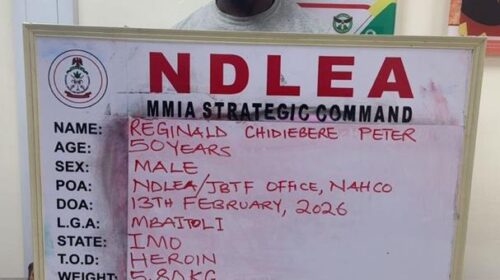 NDLEA
MMIA STRATEGIC COMMAND
NAME: REGINALD CHIDIEBERE PETER
AGE: 50 YEARS
SEX: MALE
POA: NDLEA/JBTF OFFICE, NAHCO
DOA: 13TH FEBRUARY, 2026
L.G.A: MBAITOLI
STATE: IMO
T.O.D: HEROIN
WEIGHT: 5.80KG